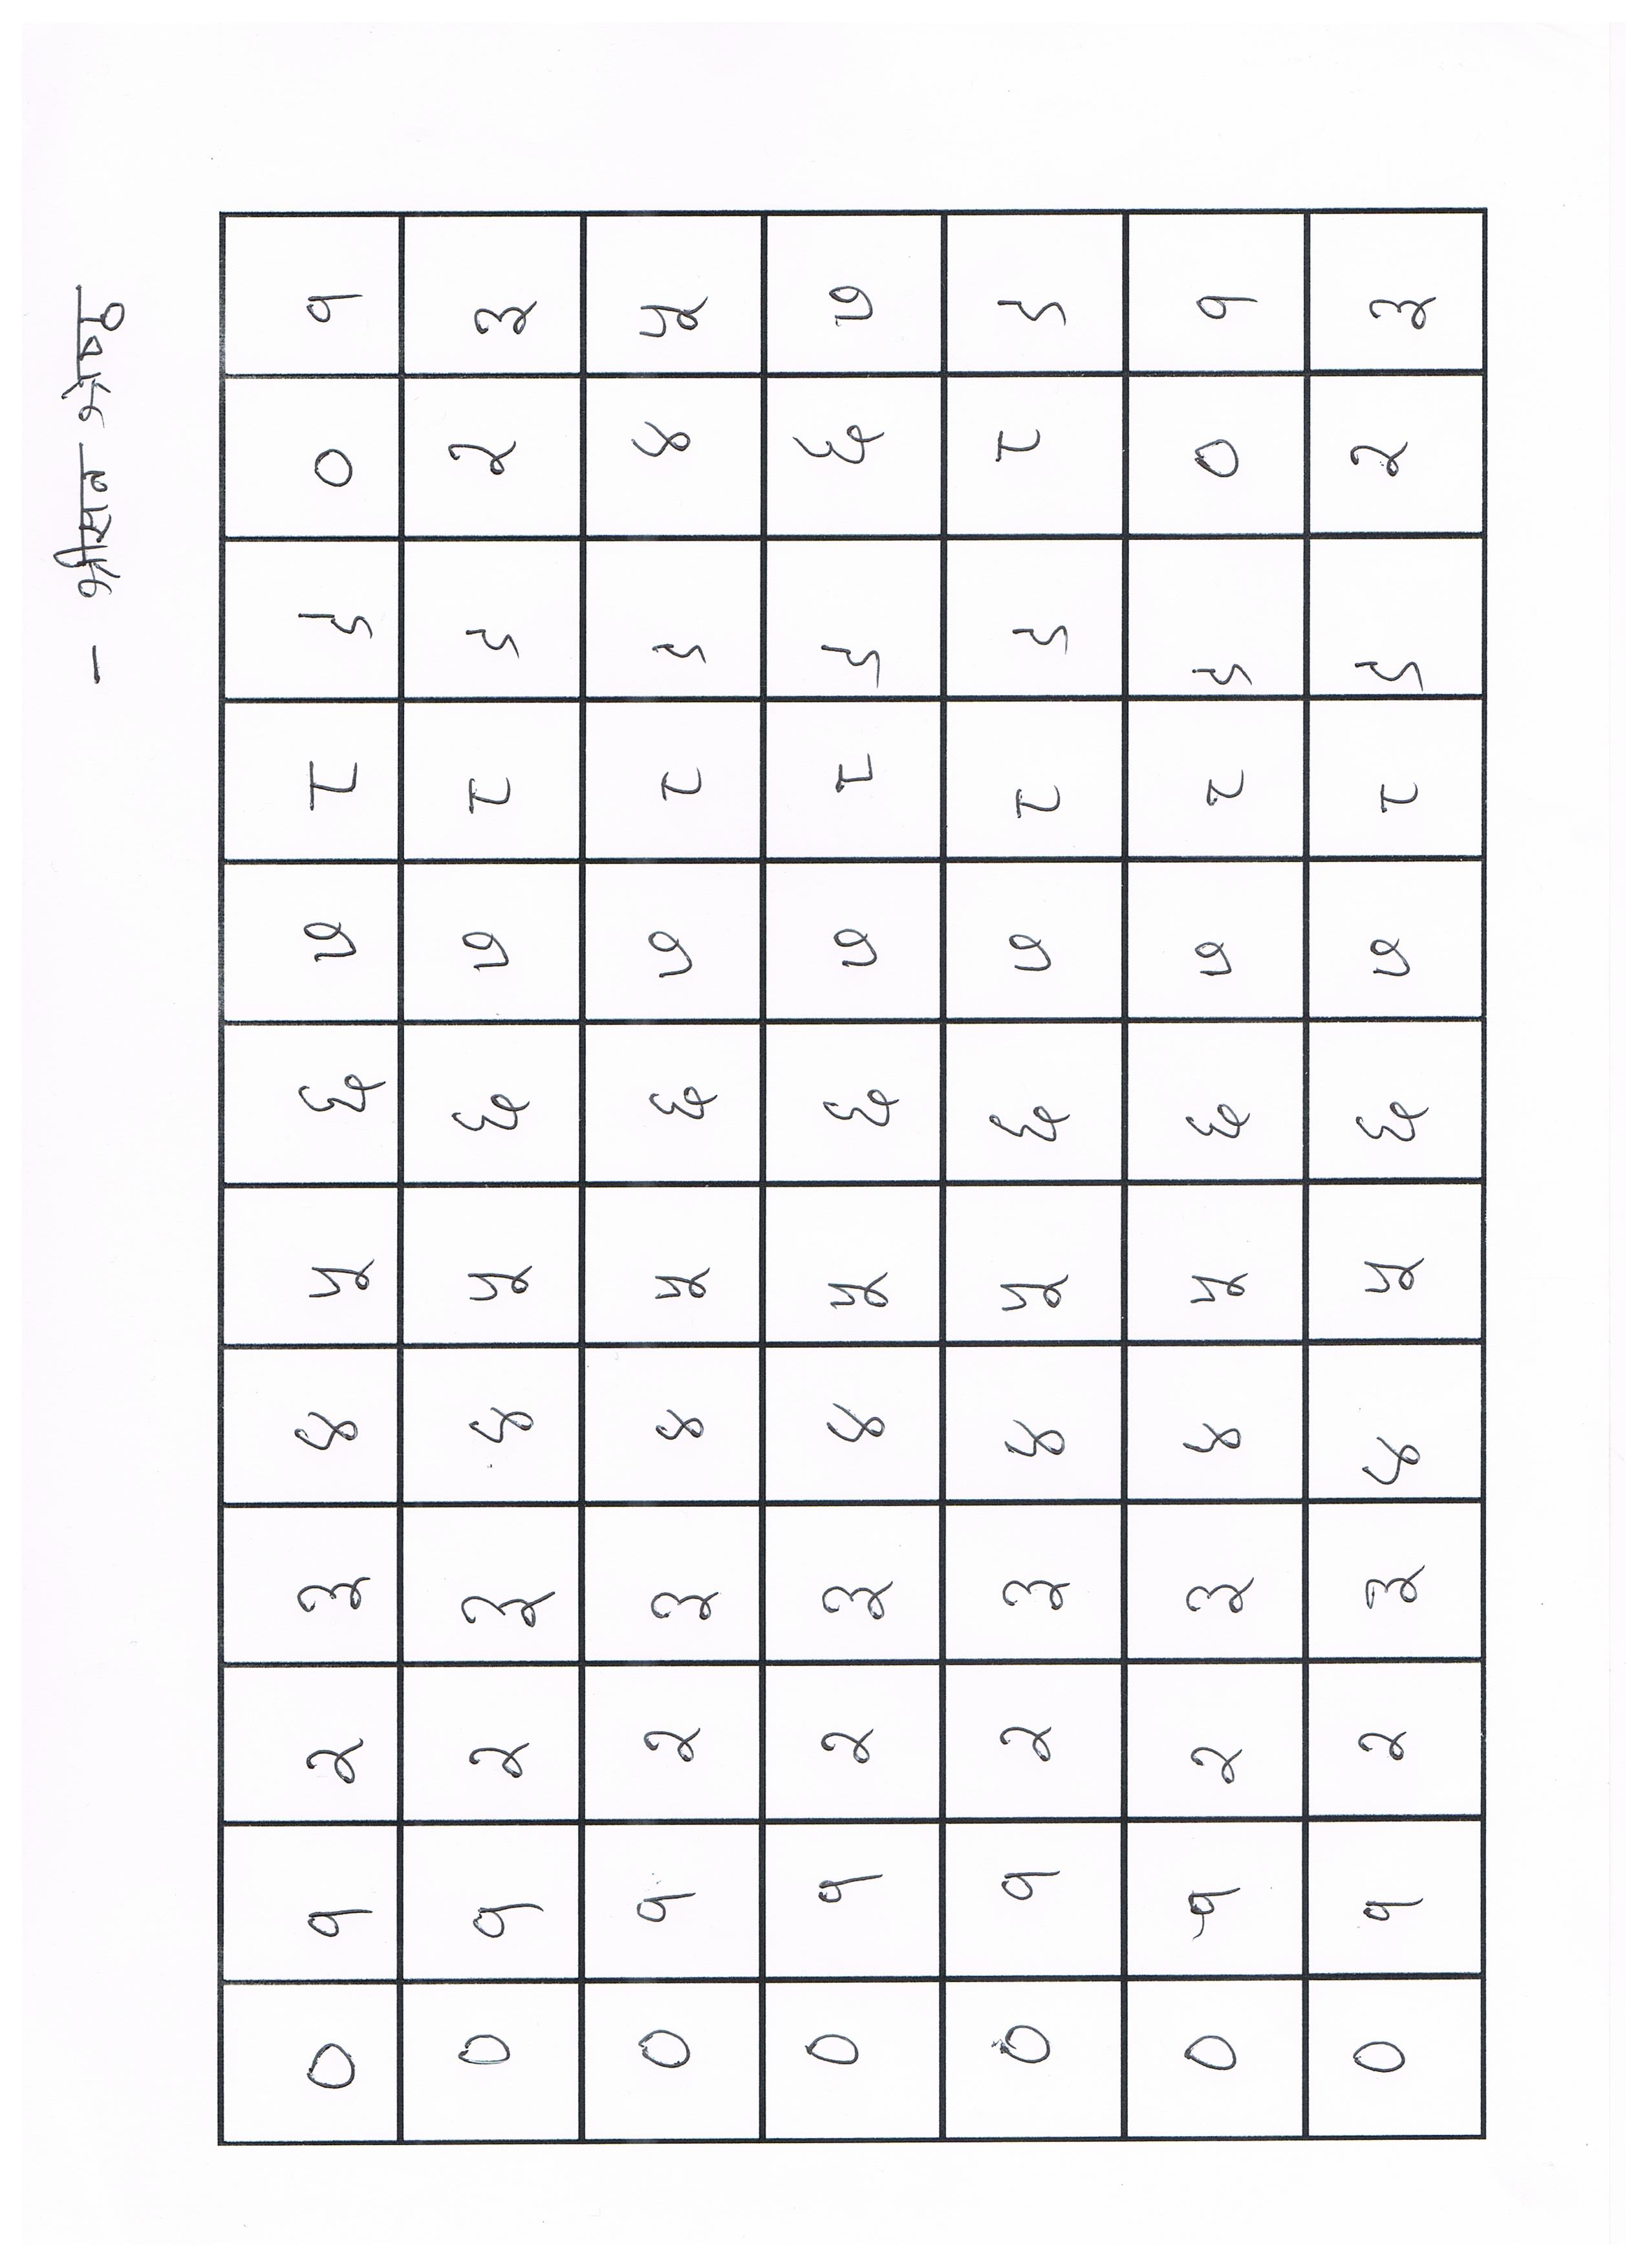 – श्रीसान श्रेष्ठ
० १ २ ३ ४ ५ ६ ७ ८ ९ ० १
० १ २ ३ ४ ५ ६ ७ ८ ९ २ ३
० १ २ ३ ४ ५ ६ ७ ८ ९ ४ ५
० १ २ ३ ४ ५ ६ ७ ८ ९ ६ ७
० १ २ ३ ४ ५ ६ ७ ८ ९ ८ ९
० १ २ ३ ४ ५ ६ ७ ८ ९ ० १
० १ २ ३ ४ ५ ६ ७ ८ ९ २ ३